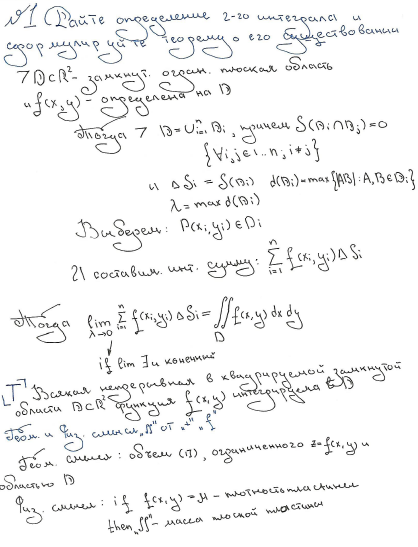 №1 Дайте определение 2-го интеграла и
сформулируйте теорему о его существовании
7 D⊂R²- замкнут. огран. плоская область
и f(x,y) - определена на D
Тогда 7 D=∪ⁿᵢ₌₁ Dᵢ, причем S(Dᵢ∩Dⱼ)=0
{∀i,j∈1..n; i≠j}
и ΔSᵢ = S(Dᵢ) d(Dᵢ)=max{|AB|: A,B∈Dᵢ}
λ = max d(Dᵢ)
Выберем: P(xᵢ,yᵢ)∈Dᵢ
И составим инт. сумму: ∑ⁿᵢ₌₁ f(xᵢ,yᵢ)ΔSᵢ
Тогда lim λ→0 ∑ⁿᵢ₌₁ f(xᵢ,yᵢ)ΔSᵢ = ∬_D f(x,y)dxdy
if lim ∃ и конечный
[Т] Всякая непрерывная в квадрируемой замкнутой
области D⊂R² функция f(x,y) интегрируема в D
Геом. и Физ. смысл „∬" от „f"
Геом. смысл: объем (П), ограниченного z=f(x,y) и
областью D
Физ. смысл: if f(x,y)=μ - плотность пластинки
then „∬" - масса плоской пластины